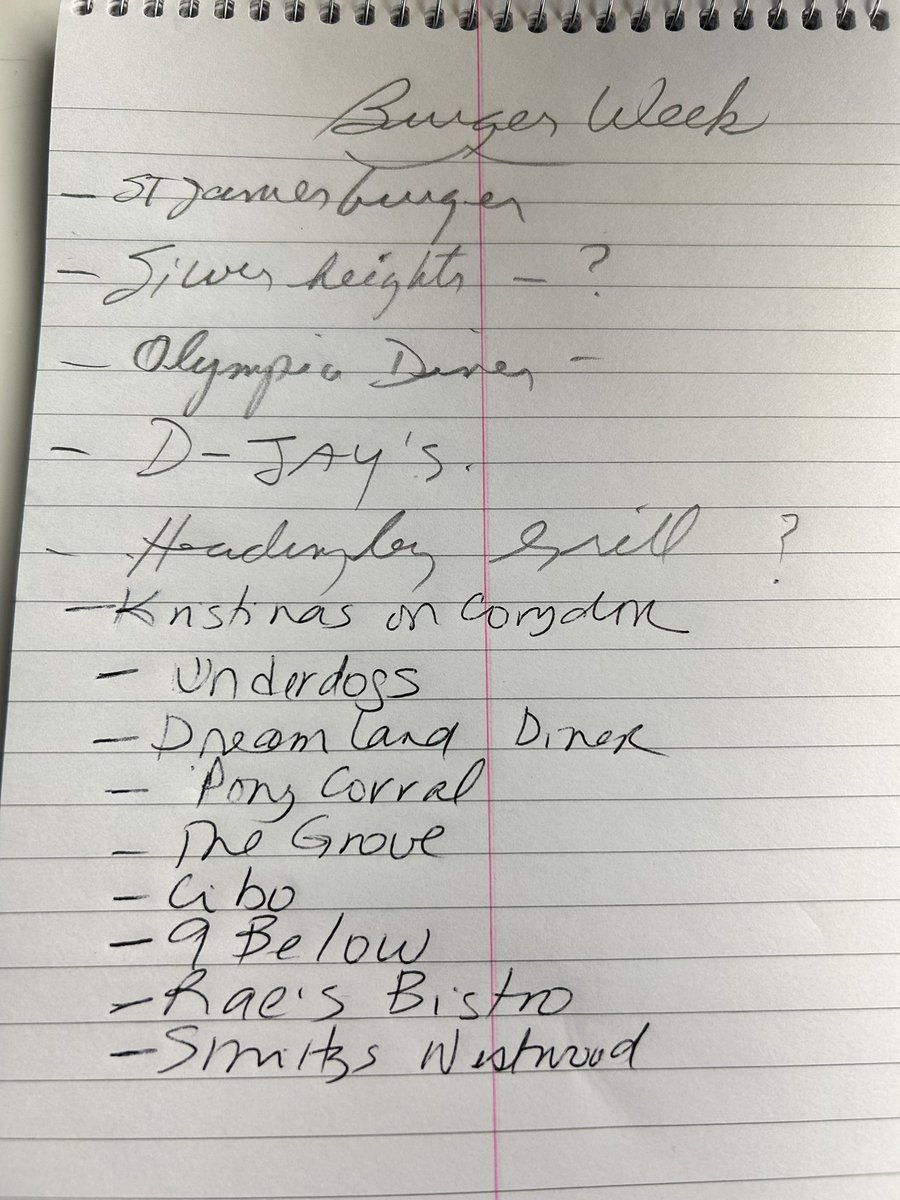 Burger Week
- ST James burger
- Silver heights - ?
- Olympia Diner -
- D-JAY'S.
- Headingley Grill ?
- Kristinas on Corydon
- Underdogs
- Dreamland Diner
- Pony Corral
- The Grove
- Cibo
- 9 Below
- Rae's Bistro
- Smitty's Westwood